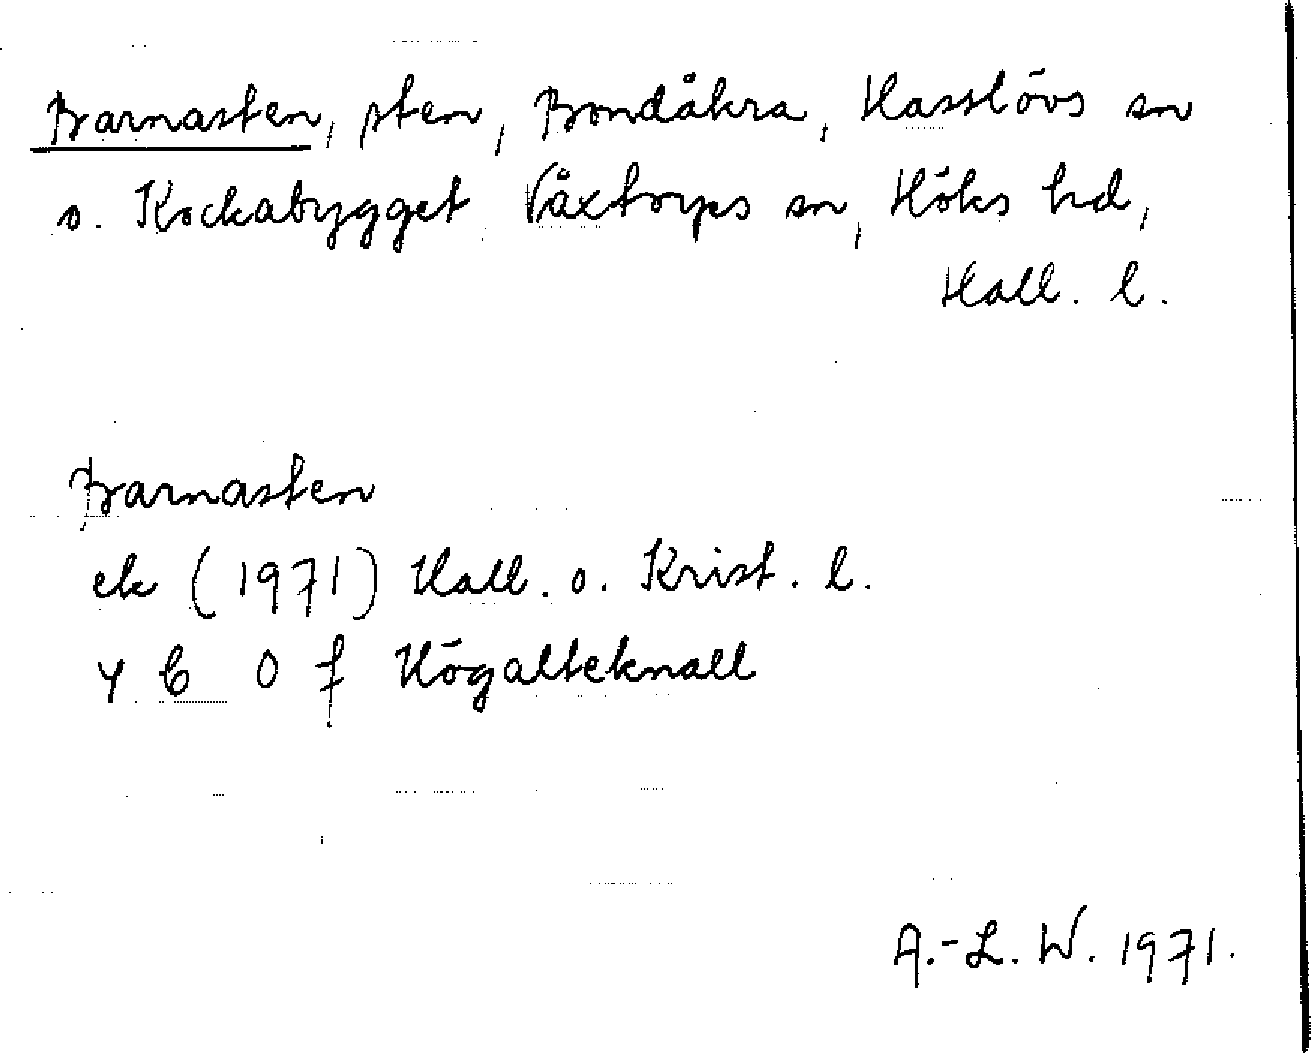 Barnasten, sten, Bondåkra, Hasslövs sn
o. Kockabygget Våxtorps sn, Höks hd,
Hall. l.
Barnasten
ek (1971) Hall. o. Krist. l.
4 C 0 f Högalteknall
A.-L. W. 1971.